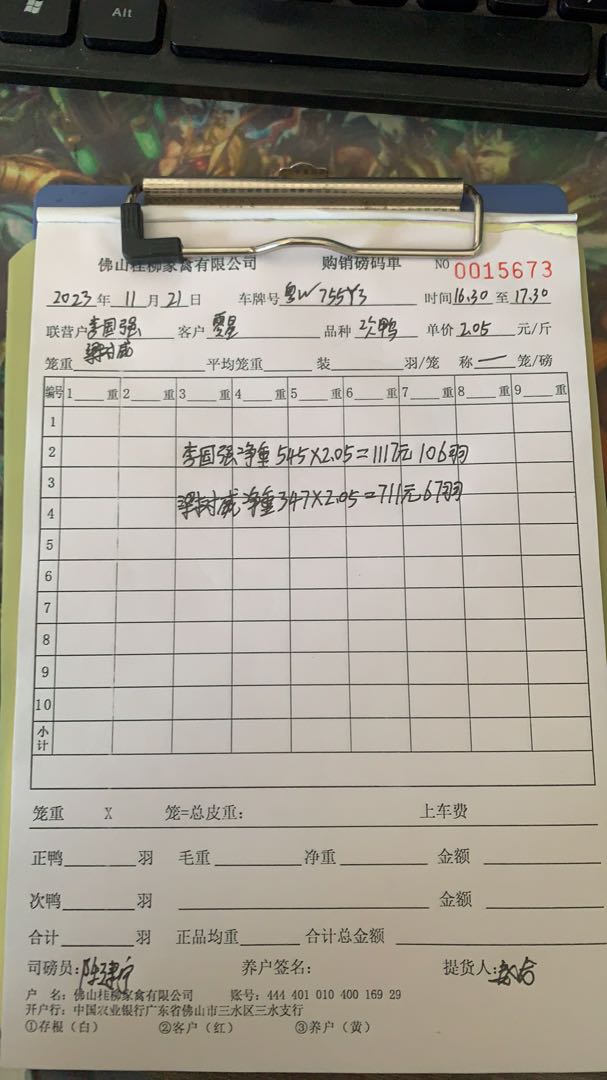 Alt
佛山桂柳家禽有限公司 购销磅码单 NO 0015673
2023年11月21日 车牌号粤W755Y3 时间16.30至17.30
联营户李国强 客户零星 品种次鸭 单价2.05元/斤
笼重 平均笼重 装 羽/笼 称一笼/磅
编号 1 重 2 重 3 重 4 重 5 重 6 重 7 重 8 重 9 重
1
2 李国强净重545×2.05=1117元 106羽
3
4 梁树威净重347×2.05=711元67羽
5
6
7
8
9
10
小计
笼重 X 笼=总皮重: 上车费
正鸭 羽 毛重 净重 金额
次鸭 羽 金额
合计 羽 正品均重 合计总金额
司磅员: 养户签名: 提货人:
户 名: 佛山桂柳家禽有限公司 账号: 444 401 010 400 169 29
开户行: 中国农业银行广东省佛山市三水区三水支行
①存根(白) ②客户(红) ③养户(黄)